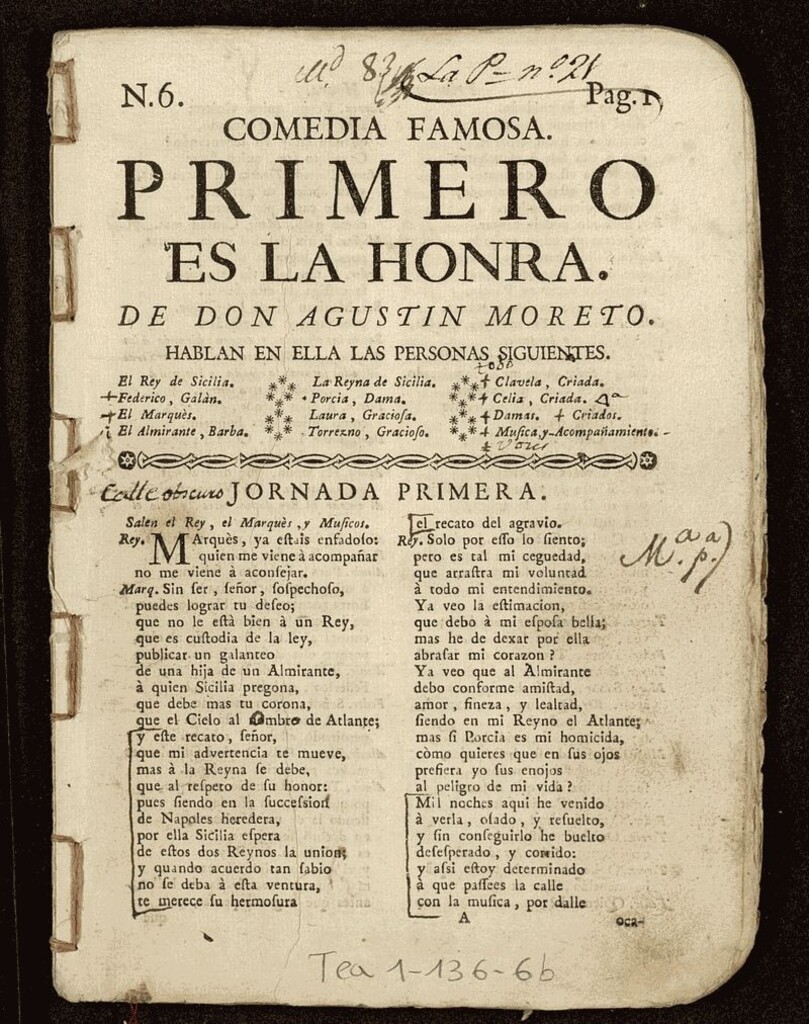 La P- nº 21
N.6.
Pag. 1
COMEDIA FAMOSA.
PRIMERO
ES LA HONRA.
DE DON AGUSTIN MORETO.
HABLAN EN ELLA LAS PERSONAS SIGUIENTES.
El Rey de Sicilia.
Federico, Galàn.
El Marquès.
El Almirante, Barba.
La Reyna de Sicilia.
Porcia, Dama.
Laura, Gracioſa.
Torrezno, Gracioſo.
Clavela, Criada.
Celia, Criada.
Damas. Criados.
Muſica, y Acompañamiento.
Calle obscura JORNADA PRIMERA.
Salen el Rey, el Marquès, y Muſicos.
Rey. MArquès, ya eſtais enfadoſo:
quien me viene à acompañar
no me viene à aconſejar.
Marq. Sin ſer, ſeñor, ſoſpechoſo,
puedes lograr tu deſeo;
que no le eſtà bien à un Rey,
que es cuſtodia de la ley,
publicar un galanteo
de una hija de un Almirante,
à quien Sicilia pregona,
que debe mas tu corona,
que el Cielo al ombro de Atlante;
y eſte recato, ſeñor,
que mi advertencia te mueve,
mas à la Reyna ſe debe,
que al reſpeto de ſu honor:
pues ſiendo en la ſucceſsion
de Napoles heredera,
por ella Sicilia eſpera
de eſtos dos Reynos la union;
y quando acuerdo tan ſabio
no ſe deba à eſta ventura,
te merece ſu hermoſura
el recato del agravio.
Rey. Solo por eſſo lo ſiento;
pero es tal mi ceguedad,
que arraſtra mi voluntad
à todo mi entendimiento.
Ya veo la eſtimacion,
que debo à mi eſpoſa bella;
mas he de dexar por ella
abraſar mi corazon?
Ya veo que al Almirante
debo conforme amiſtad,
amor, fineza, y lealtad,
ſiendo en mi Reyno el Atlante;
mas ſi Porcia es mi homicida,
còmo quieres que en ſus ojos
prefiera yo ſus enojos
al peligro de mi vida?
Mil noches aqui he venido
à verla, oſado, y reſuelto,
y ſin conſeguirlo he buelto
deſeſperado, y corrido:
y aſsi eſtoy determinado
à que paſſees la calle
con la muſica, por dalle
A
oca-
Tea 1-136-6b